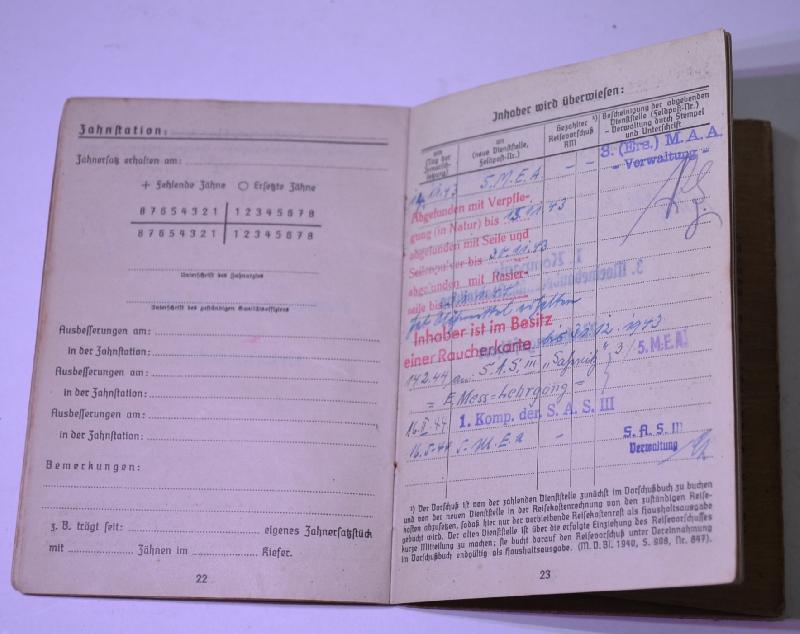 Zahnstation:
Zahnersatz erhalten am:
+ Fehlende Zähne O Ersetzte Zähne
8 7 6 5 4 3 2 1 1 2 3 4 5 6 7 8
8 7 6 5 4 3 2 1 1 2 3 4 5 6 7 8
Unterschrift des Zahnarztes
Unterschrift des zuständigen Sanitätsoffiziers
Ausbesserungen am:
in der Zahnstation:
Ausbesserungen am:
in der Zahnstation:
Ausbesserungen am:
in der Zahnstation:
Bemerkungen:
z. B. trägt seit: eigenes Zahnersatzstück
mit Zähnen im Kiefer.
22
Inhaber wird überwiesen:
am
(Tag der
an
(neue Dienststelle,
Feldpost-Nr.)
Bezahlter ¹)
Reisevorschuß
RM
Bescheinigung der abgebenden
Dienststelle (Feldpost-Nr.)
– Verwaltung durch Stempel
und Unterschrift
11.43 S.M.E.A - -
3. (Ers.) M. A. A.
- Verwaltung -
Abgefunden mit Verpfle-
gung (in Natur) bis 15.11.43
abgefunden mit Seife und
Seifenpulver bis 30.11.43
abgefunden mit Rasier-
seife bis
erhalten
Inhaber ist im Besitz
einer Raucherkarte bis 12. 1943
14.2.44 an S.A.S. III 3/ 5. M.E.A.
= E Mess=Lehrgang =
1. Komp. der S. A. S. III
16.5.44 S.M.E.A -
S. A. S. III
Verwaltung
¹) Der Vorschuß ist von der zahlenden Dienststelle zunächst im Vorschußbuch zu buchen
und von der neuen Dienststelle in der Reisekostenrechnung von den zuständigen Reise-
kosten abzusetzen, sodaß hier nur der verbleibende Reisekostenrest als Haushaltsausgabe
gebucht wird. Der alten Dienststelle ist über die erfolgte Einziehung des Reisevorschusses
kurze Mitteilung zu machen; sie bucht darauf den Reisevorschuß unter Vereinnahmung
im Vorschußbuch endgültig als Haushaltsausgabe. (M. D. Bl. 1940, S. 808, Nr. 847).
23